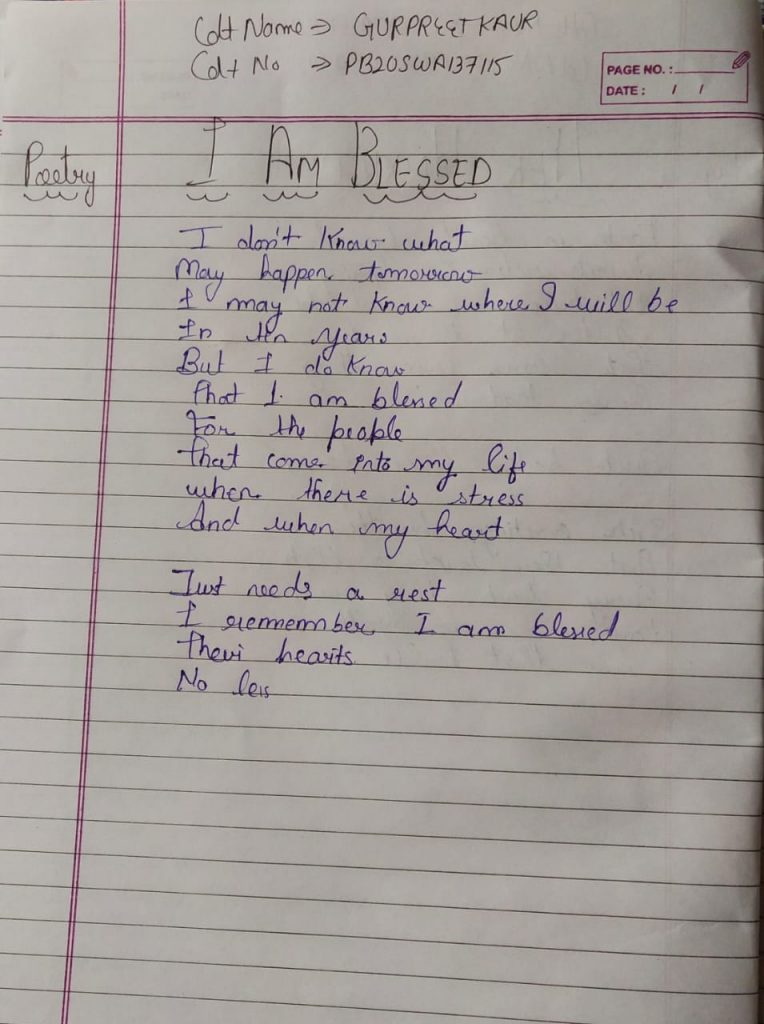 Cdt Name ⇒ GURPREET KAUR
Cdt No ⇒ PB20SWA137115
PAGE NO. :
DATE : / /
Poetry
I AM BLESSED
I don't know what
May happen tomorrow
I may not know where I will be
In ten years
But I do know
that I am blessed
For the people
that come into my life
when there is stress
And when my heart
Just needs a rest
I remember I am blessed
Their hearts
No less